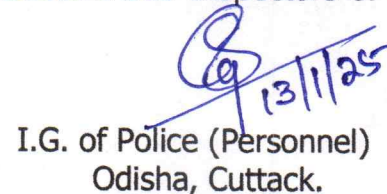 13/1/25
I.G. of Police (Personnel)
Odisha, Cuttack.